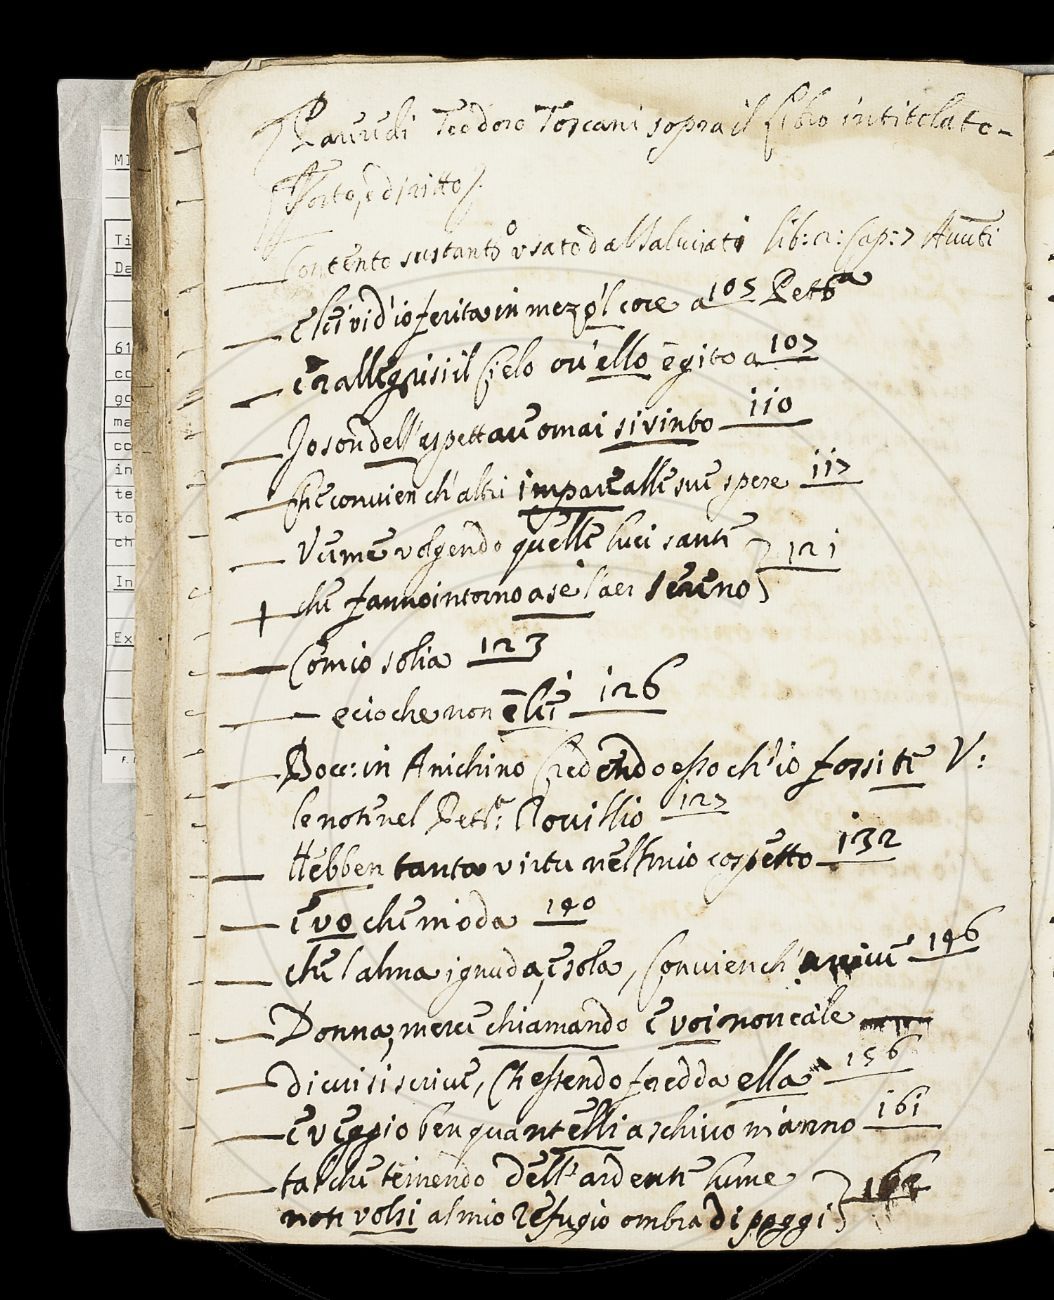 di Teodoro Toscani sopra il libro intitolato
Torto, e diritto.
Contento sustantō usato dal Salviati lib: 2: cap: 7 Avuti
e lei vid'io ferita in mezo 'l core a 105 Petrca
e rallegrisi il Cielo ov'ello è gito a 107
Io son dell'aspettar omai si vinto 110
Che convien ch'altri impare alle sue spese 117
Veme volgendo quelle luci sante } 121
che fanno intorno a se l'aer sereno }
Com'io solia 123
e cio che non è lei 126
Bocc: in Anichino Credendo esso ch'io fossi te V:
le note nel Petr: Rovillio 127
Hebben tanta virtu nel mio cospetto 132
e vo che m'oda 140
che l'alma ignuda, e sola, Convien ch'arrive 146
Donna, merce chiamando e voi non cale
di cui si scrive, Ch'essendo fredda ella 156
e veggio ben quant'elli a schivo m'anno 161
tal che temendo dell'ardente lume } 162
non volsi al mio refugio ombra di poggi }
Ti
Da
61
co
go
ma
co
in
te
to
ch
In
Ex